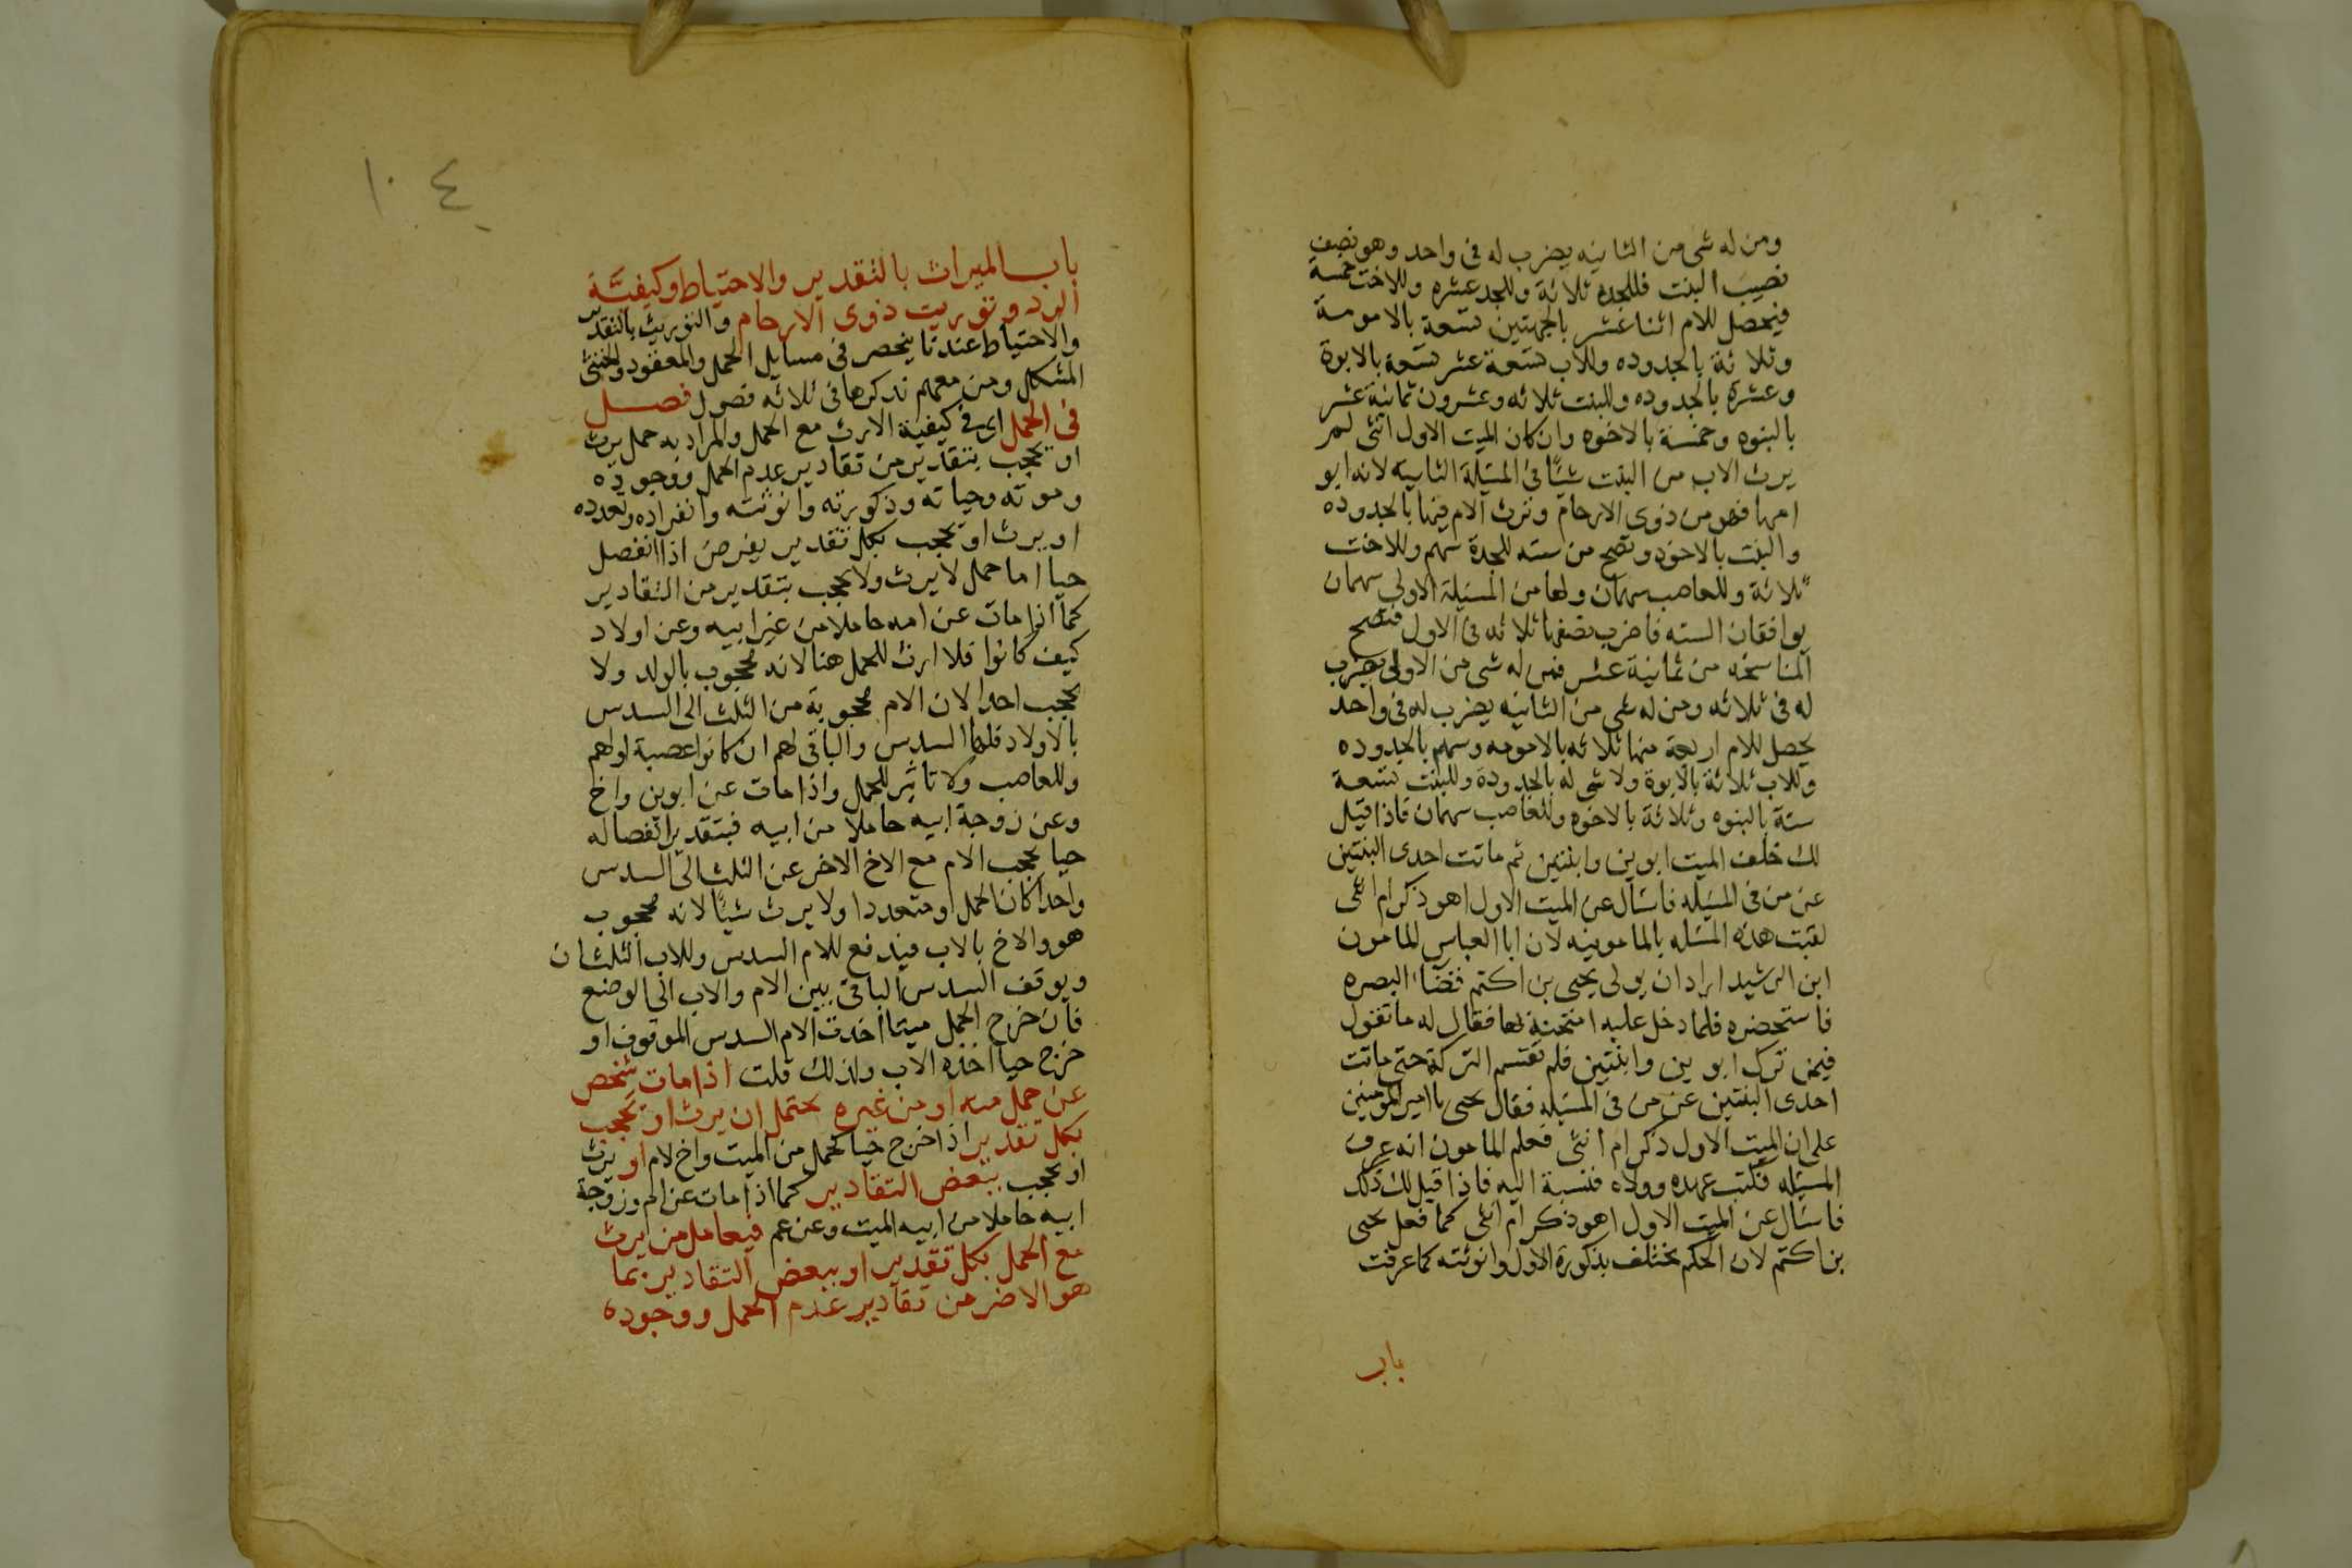 ومن له شى من الثانيه يضرب له فى واحد وهو نصف
نصيب البنت فللجده ثلاثة وللجد عشره وللاخت خمسة
فيحصل للام اثنا عشر بالجهتين تسعة بالامومة
وثلاثة بالجدوده وللاب تسعة عشر تسعة بالابوة
وعشرة بالجدوده وللبنت ثلاثه وعشرون ثمانية عشر
بالبنوه وخمسة بالاخوه وان كان الميت الاول انثى لم
يرث الاب من البنت شيًا فى المسئلة الثانية لانه ابو
امها فهو من ذوى الارحام وترث الام فيها بالجدوده
والبنت بالاخوه وتصح من سته للجدة سهم وللاخت
ثلاثة وللعاصب سهمان ولها من المسئلة الاولى سهمان
يوافقان السته فاضرب نصفها ثلاثه فى الاول فتصح
المناسخه من ثمانية عشر فمن له شى من الاولى يضرب
له فى ثلاثه ومن له شى من الثانيه يضرب له فى واحد
يحصل للام اربعة منها ثلاثه بالامومه وسهم بالجدوده
وللاب ثلاثة بالابوة ولا شى له بالجدودة وللبنت تسعة
ستة بالبنوه وثلاثة بالاخوه وللعاصب سهمان فاذا قيل
لك خلف الميت ابوين وابنتين ثم ماتت احدى البنتين
عن من فى المسئله فاسأل عن الميت الاول اهو ذكر ام انثى
لقبت هذه المسئله بالمامونيه لان ابا العباس المامون
ابن الرشيد اراد ان يولى يحيى بن اكثم قضا البصره
فاستحضره فلما دخل عليه امتحنه بها فقال له ما تقول
فيمن ترك ابوين وابنتين فلم تقتسم التركة حتى ماتت
احدى البنتين عن من فى المسئله فقال يحيى يا امير المومنين
على ان الميت الاول ذكر ام انثى فعلم المامون انه عرف
المسئله فكتب عهده وولاه فنسبة اليه فاذا قيل لك ذلك
فاسأل عن الميت الاول اهو ذكر ام انثى كما فعل يحيى
بن اكثم لان الحكم يختلف بذكورة الاول وانوثته كما عرفت
باب
١٠٤
باب الميراث بالتقدير والاحتياط وكيفيَّة
الرد وتوريث ذوى الارحام والتوريث بالتقدير
والاحتياط عندنا ينحصر فى مسايل الحمل والمفقود والخنثى
المشكل ومن معهم نذكرها فى ثلاثه فصول فصل
فى الحمل اى فى كيفية الارث مع الحمل والمراد به حمل يرث
او يحجب بتقدير من تقادير عدم الحمل ووجوده
وموته وحياته وذكورته وانوثته وانفراده وتعدده
او يرث او يحجب بكل تقدير يفرض اذا انفصل
حيا اما حمل لا يرث ولا يحجب بتقدير من التقادير
كما اذا مات عن امه حاملا من غير ابيه وعن اولاد
كيف كانوا فلا ارث للحمل هنا لانه محجوب بالولد ولا
يحجب احدا لان الام محجوبة من الثلث الى السدس
بالاولاد فلها السدس والباقى لهم ان كانوا عصبة او لهم
وللعاصب ولا تاثير للحمل واذا مات عن ابوين واخ
وعن زوجة ابيه حاملا من ابيه فبتقدير انفصاله
حيا يحجب الام مع الاخ الاخر عن الثلث الى السدس
واحدا كان الحمل او متعددا ولا يرث شيًا لانه محجوب
هو والاخ بالاب فيدفع للام السدس وللاب الثلثان
ويوقف السدس الباقى بين الام والاب الى الوضع
فان خرج الحمل ميتا اخذت الام السدس الموقوف او
خرج حيا اخذه الاب ولذلك قلت اذا مات شخص
عن حمل منه او من غيره يحتمل ان يرث او يحجب
بكل تقدير اذا خرج حيا كحمل من الميت واخ لام او يرث
او يحجب ببعض التقادير كما اذا مات عن ام وزوجة
ابيه حاملا من ابيه الميت وعن عم فيعامل من يرث
مع الحمل بكل تقدير او ببعض التقادير بما
هو الاضر من تقادير عدم الحمل ووجوده